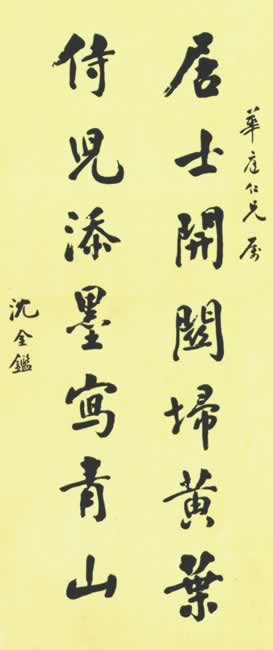 華庭仁兄属
居士開關埽黃葉
侍兒添墨寫青山
沈金鑑